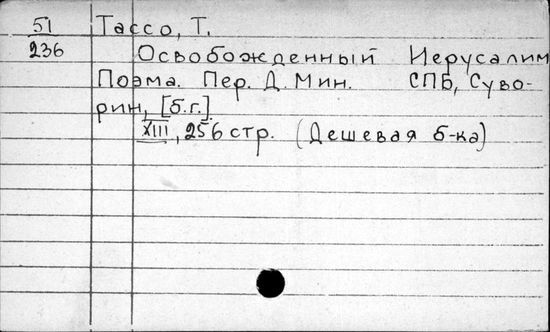 51 Тассо, Т.
236 Освобожденный Иерусалим
Поэма. Пер. Д. Мин. СПБ, Суво-
рин, [б.г.].
XIII, 256 стр. (Дешевая б-ка)